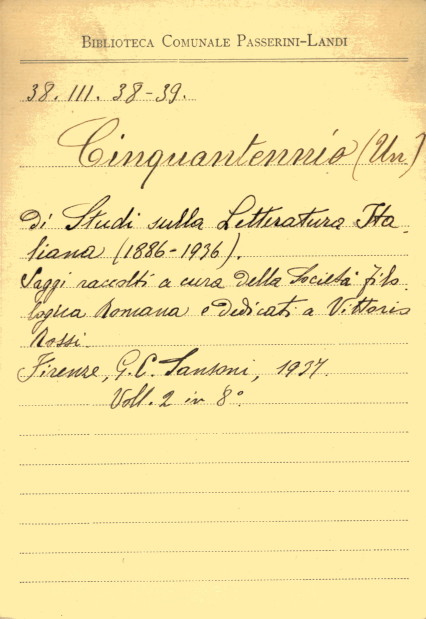 BIBLIOTECA COMUNALE PASSERINI-LANDI
38. III. 38-39.
Cinquantennio (Un)
di Studi sulla Letteratura Ita-
liana (1886-1936).
Saggi raccolti a cura della Società filo-
logica Romana e dedicati a Vittorio
Rossi.
Firenze, G. C. Sansoni, 1937.
Voll. 2 in 8°